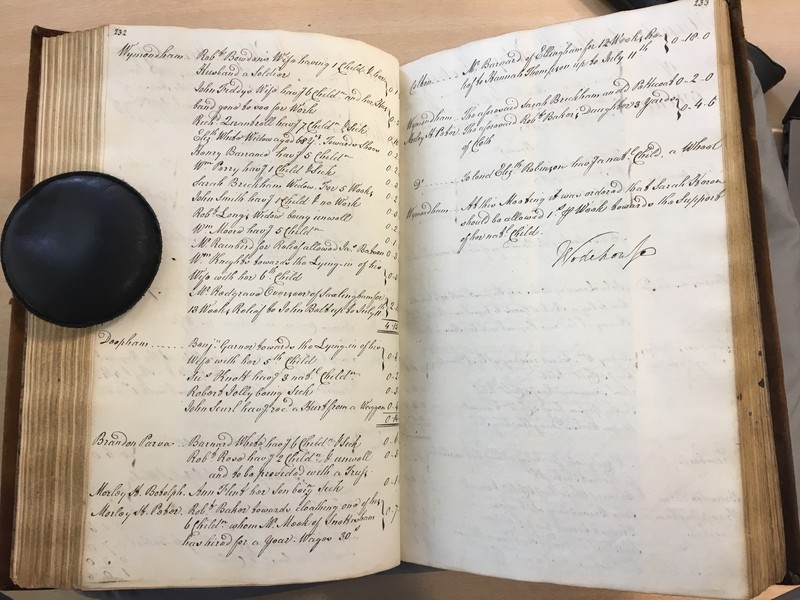 232
Wymondham Robt. Bowden's Wife having 1 Child & her
Husband a Soldier
John Freddy's Wife havg. 6 Childn. and her Hus
band gone to sea for Work
Richd. havg. 7 Childn. & Sick
Elizth. White Widow aged 68 Yrs. Towards Shoes
Henry Barrance havg. 5 Childn.
Wm. Parry havg. 1 Child & Sick
Sarah Breckham Widow For 5 Weeks
John Smith havg. 1 Child & no Work
Robt. Longs Widow being unwell
Wm. Moore havg. 5 Childn.
Mr. Rainbird for Relief allowed Jas.
Wm. Knights towards the Lying-in of his
Wife with her 6th. Child
Mr. Redgrave Overseer of Swelingham for
13 Weeks Relief to John Batt up to July 11
Deopham Benjn. Garner towards the Lying-in of his
Wife with her 5th. Child
Jas. Knott havg. 3 natl. Childn.
Robert Jolly being Sick
John Searl havg. recd. a Hurt from a Waggon 0-4
Brandon Parva Barnard White havg. 6 Childn. & Sick 0-6
Robt. Rose havg. 2 Childn. & unwell
and to be provided with a Truss
Morley St. Botolph Ann Flint her Son being Sick
Morley St. Peter Robt. Baker towards cloathing one of his
6 Childn. whom Mr. Mack of
has hired for a Year. Wages 30s.
0-7
233
Colton Mr. Barnard of Ellingham for 12 Weeks Re-
lief to Hannah Thompson up to July 11th. 0-18-0
Wymondham The aforesaid Sarah Breckham a Petticoat 0-2-0
Morley St. Peter The aforesaid Robt. Baker's Daughter 3 Yards
of Cloth 0-4-6
Do. To lend Elizth. Robinson havg. a natl. Child, a Wheel
Wymondham At this Meeting it was ordered that Sarah
should be allowed 1s. pr. Week towards the Support
of her natl. Child.
Wodehouse